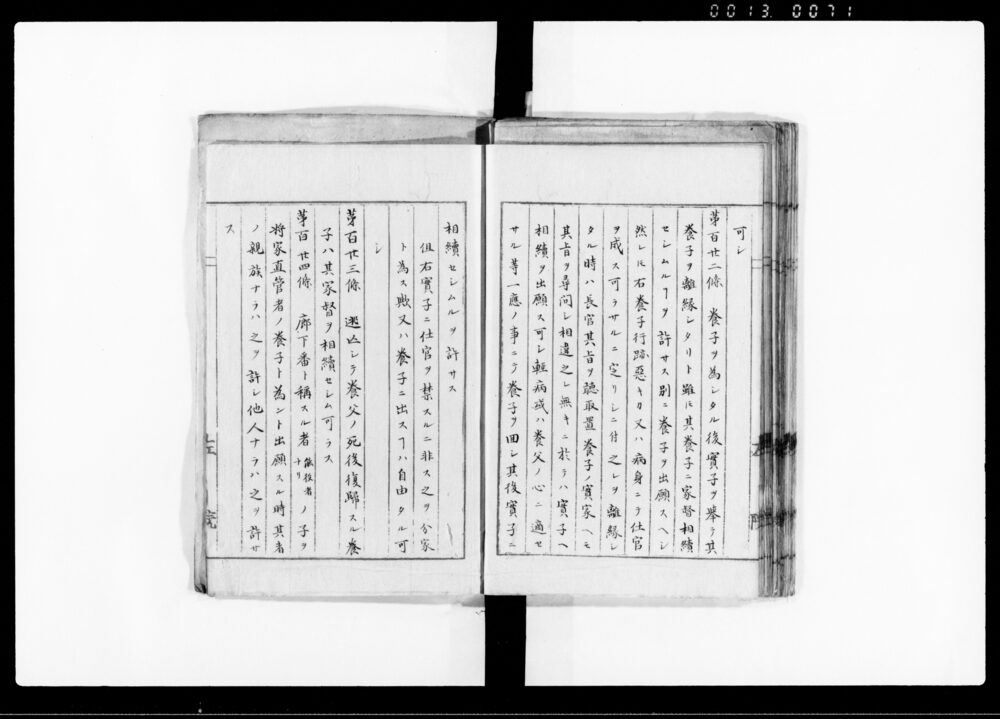 0013. 0071
可シ
第百廿二條 養子ヲ為シタル後實子ヲ擧ラ其
養子ヲ離縁シタリト雖ㇳモ其養子ニ家督相續
セシムルヿヲ許サス別ニ養子ヲ出願スヘシ
然レㇳモ右養子行跡惡キカ又ハ病身ニテ仕官
ヲ成ス可ラサルニ定リシニ付之レヲ離縁シ
タル時ハ長官其旨ヲ聴取置養子ノ實家ヘモ
其旨ヲ尋問シ相違之レ無キニ於テハ實子ヘ
相續ヲ出願ス可シ輕病或ハ養父ノ心ニ適セ
サル等一應ノ事ニテ養子ヲ回シ其後實子ニ
相續セシムルヲ許サス
但右實子ニ仕官ヲ禁スルニ非ス之ヲ分家
ト為ス歟又ハ養子ニ出スヿハ自由タル可
シ
第百廿三條 逃亡シテ養父ノ死後復歸スル養
子ハ其家督ヲ相續セシム可ラス
第百廿四條 廊下番ト稱スル者 ナリ ノ子ヲ
将家直管者ノ養子ト為ント出願スル時其者
ノ親族ナラハ之ヲ許シ他人ナラハ之ヲ許サ
ス